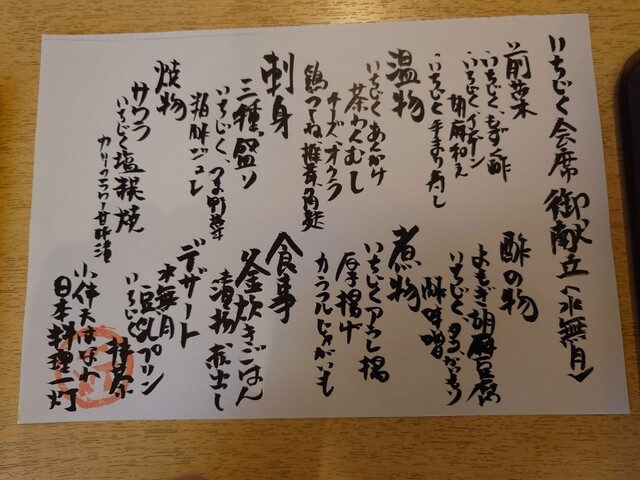 いちじく会席 御献立 〈水無月〉
前菜
いちじくもずく酢
いちじくインゲン
胡麻和え
いちじく手まり寿し
温物
いちじくあんかけ
茶わんむし
チーズ、オクラ
鶏つくね、椎茸、角麩
刺身
三種盛り
いちじく、つま野菜
粕酢ジュレ
焼物
サワラ
いちじく塩糀焼
カリフラワー甘酢漬
酢の物
よもぎ胡麻豆腐
いちじく
酢味噌
煮物
いちじくアラレ揚
厚揚げ
カラフルじゃがいも
食事
釜炊きごはん
漬物 椀出し
デザート
水無月 抹茶
豆乳プリン
いちじく
小伴天はなれ
日本料理一灯